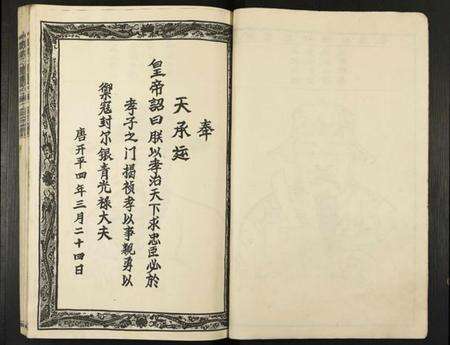 奉
天承运
皇帝詔曰朕以孝治天下求忠臣必於
孝子之门揚祯孝以事親勇以
禦寇封尔银青光禄大夫
唐开平四年三月二十四日